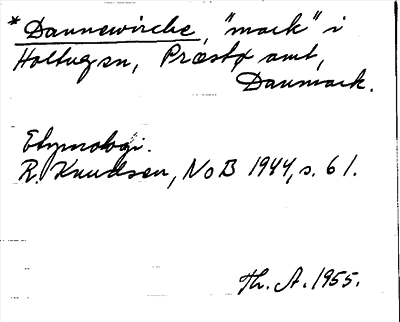 *Dannewirche, "mark" i
Holtugen, Præstø amt,
Danmark.
Etymologi.
R. Knudsen, NoB 1944, s. 61.
Th. A. 1955.